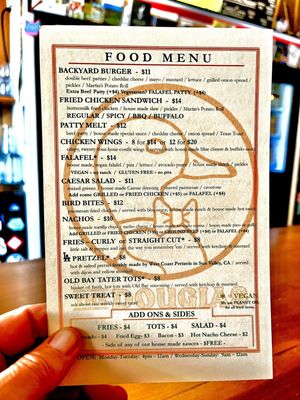 FOOD MENU
BACKYARD BURGER - $11
double beef patties / cheddar cheese / mayo / mustard / lettuce / grilled onion spread /
pickles / Martin's Potato Roll
Extra Beef Patty (+$4) Vegetarian? FALAFEL PATTY (+$4)
FRIED CHICKEN SANDWICH - $14
buttermilk fried chicken / house made slaw / pickles / Martin's Potato Roll
REGULAR / SPICY / BBQ / BUFFALO
PATTY MELT - $12
beef patty / house special sauce / cheddar cheese / onion spread / Texas Toast
CHICKEN WINGS - 8 for $12 for $20
house blue cheese & buffalo
FALAFEL* - $14
house made, vegan falafel / pita / lettuce / avocado / house made / pickles
VEGAN - no / GLUTEN FREE - no pita
CAESAR SALAD - $11
mixed greens / house made Caesar dressing / shaved parmesan / croutons
Add some GRILLED or FRIED CHICKEN (+$5) or FALAFEL (+$4)
BIRD BITES - $12
fried chicken / served with bbq sauce, house made ranch & house made hot sauce
NACHOS - $10
house made tortilla chips, nacho cheese / house made
Add GRILLED or FRIED CHICKEN or FALAFEL (+$4)
FRIES - CURLY or STRAIGHT CUT* - $8
little salt and pepper and just the way you remember 'em / served with ketchup
LA PRETZEL* - $8
hot & salted pretzel freshly made by West Coast Pretzels in Sun Valley, CA / served
with dijon and yellow mustard
OLD BAY TATER TOTS* - $8
basket of fresh, hot tots with Old Bay seasoning / served with ketchup & mustard
SWEET TREAT - $8
ask about our weekly sweet treat
DOUGLAS
* = VEGAN
we use PEANUT OIL
for all fried items
ADD ONS & SIDES
FRIES - $4 TOTS - $4 SALAD - $4
Avocado - $4 Fried Egg - $3 Bacon - $3 Hot Nacho Cheese - $2
Side of any of our house made sauces - $FREE -
OPEN: Monday-Tuesday: 4pm - 12am / Wednesday-Sunday: 9am - 12am